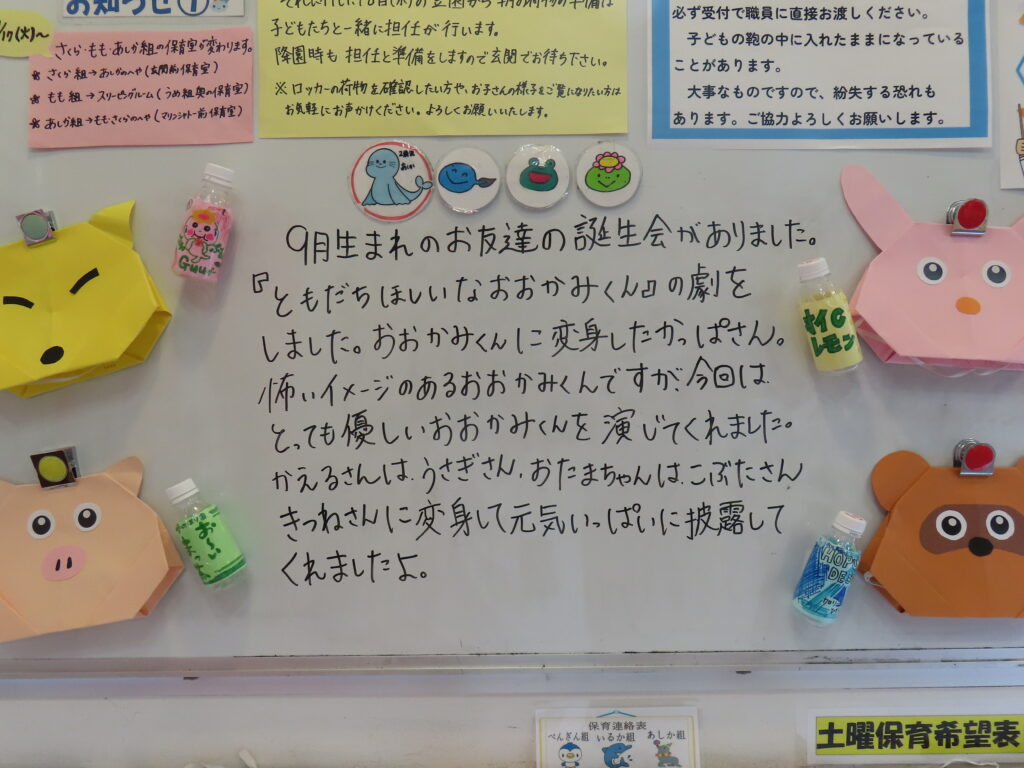 お知らせ①
/17(火)~
さくら・もも・あしか組の保育室が変わります。
さくら組→あしかのへや(玄関前保育室)
もも組→スリーピングルーム(うめ組奥の保育室)
あしか組→もも・さくらのへや(マリンシャトー前保育室)
子どもたちと一緒に担任が行います。
降園時も担任と準備をしますので玄関でお待ち下さい。
※ロッカーの荷物を確認したい方や、お子さんの様子をご覧になりたい方は
お気軽にお声かけください。よろしくお願いいたします。
必ず受付で職員に直接お渡しください。
子どもの鞄の中に入れたままになっている
ことがあります。
大事なものですので、紛失する恐れも
あります。ご協力よろしくお願いします。
9月生まれのお友達の誕生会がありました。
『ともだちほしいなおおかみくん』の劇を
しました。おおかみくんに変身したかっぱさん。
怖いイメージのあるおおかみくんですが、今回は
とっても優しいおおかみくんを演じてくれました。
かえるさんは、うさぎさん、おたまちゃんは、こぶたさん
きつねさんに変身して元気いっぱいに披露して
くれましたよ。
Guu
オイC
レモン
お〜い
HOP
DE
保育連絡表
ぺんぎん組 いるか組 あしか組
土曜保育希望表